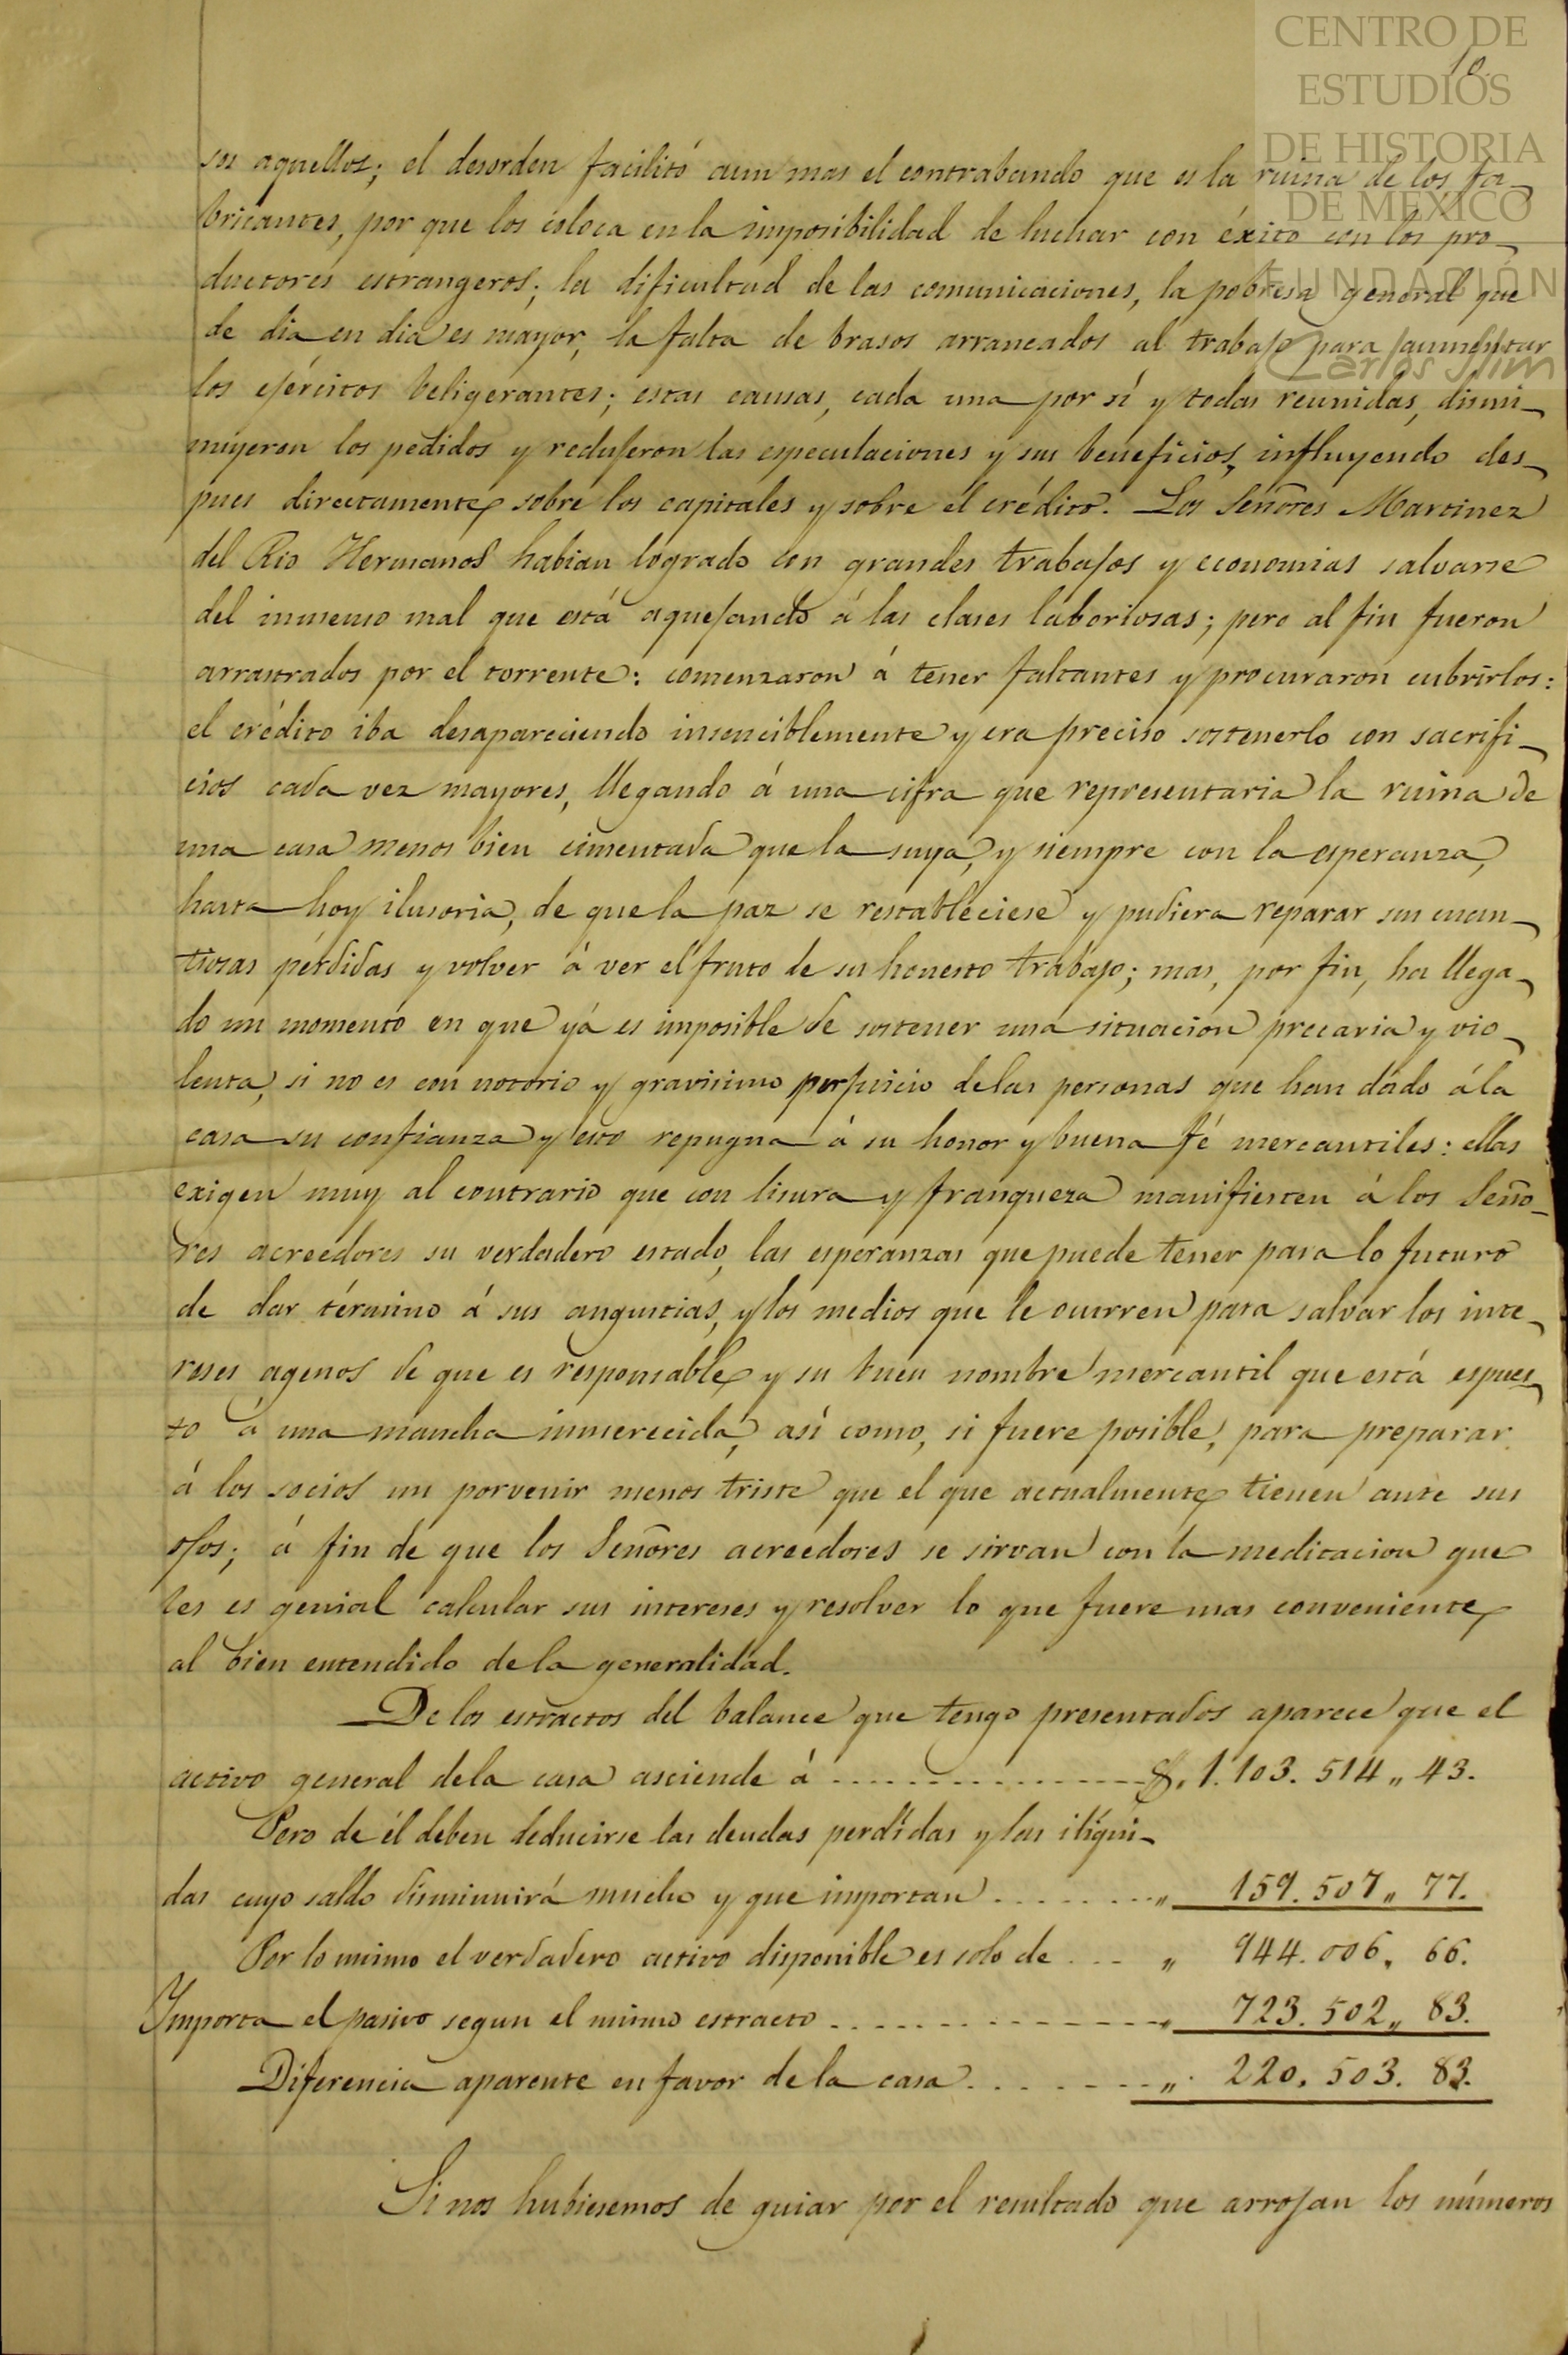 CENTRO DE
ESTUDIOS
DE HISTORIA
DE MEXICO
FUNDACIÓN
Carlos Slim
10.
sos aquellos; el desorden facilitó aun mas el contrabando que es la ruina de los fa-
bricantes, por que los coloca en la imposibilidad de luchar con éxito con los pro-
ductores estrangeros; la dificultad de las comunicaciones, la pobresa general que
de dia en dia es mayor, la falta de brasos arrancados al trabajo para aumentar
los ejércitos beligerantes; estas causas, cada una por sí y todas reunidas, dismi-
nuyeron los pedidos y redujeron las especulaciones y sus beneficios, influyendo des-
pues directamente sobre los capitales y sobre el crédito. Los Señores Martinez
del Rio Hermanos habian logrado con grandes trabajos y economias salvarse
del inmenso mal que está aquejando á las clases laboriosas; pero al fin fueron
arrastrados por el torrente: comenzaron á tener faltantes y procuraron cubrirlos:
el crédito iba desapareciendo insenciblemente y era preciso sostenerlo con sacrifi-
cios cada vez mayores, llegando á una cifra que representaria la ruina de
una casa menos bien cimentada que la suya, y siempre con la esperanza,
hasta hoy ilusoria, de que la paz se restableciese y pudiera reparar sus cuan-
tiosas pérdidas y volver á ver el fruto de su honesto trabajo; mas, por fin, ha llega-
do un momento en que yá es imposible de sostener una situacion precaria y vio-
lenta, si no es con notorio y gravisimo perjuicio de las personas que han dado á la
casa su confianza y esto repugna á su honor y buena fé mercantiles: ellas
exigen muy al contrario que con lisura y franqueza manifiesten á los Seño-
res acreedores su verdadero estado, las esperanzas que puede tener para lo futuro
de dar término á sus angustias, y los medios que le ocurren para salvar los inte-
reses agenos de que es responsable y su buen nombre mercantil que está espues-
to á una mancha inmerecida, así como, si fuere posible, para preparar
á los socios un porvenir menos triste que el que actualmente tienen ante sus
ojos; á fin de que los Señores acreedores se sirvan con la meditacion que
les es genial calcular sus intereses y resolver lo que fuere mas conveniente
al bien entendido de la generalidad.
De los estractos del balance que tengo presentados aparece que el
activo general de la casa asciende á ................ $. 1.103.514 „ 43.
Pero de él deben deducirse las deudas perdídas y las ilíqui-
das cuyo saldo disminuirá mucho y que importan ........ „ 159.507 „ 77.
Por lo mismo el verdadero activo disponible es solo de .... „ 944.006, 66.
Ymporta el pasivo segun el mismo estracto ............. „ 723.502 „ 83.
Diferencia aparente en favor de la casa ........ „ 220.503. 83.
Si nos hubiesemos de guiar por el resultado que arrojan los números